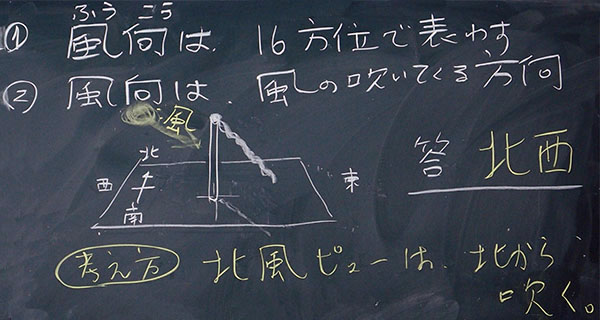 ふう こう
① 風向は、16方位で表わす
② 風向は、風の吹いてくる方向
風
北
西
南
東
答 北西
考え方 北風ピューは、北から
吹く。